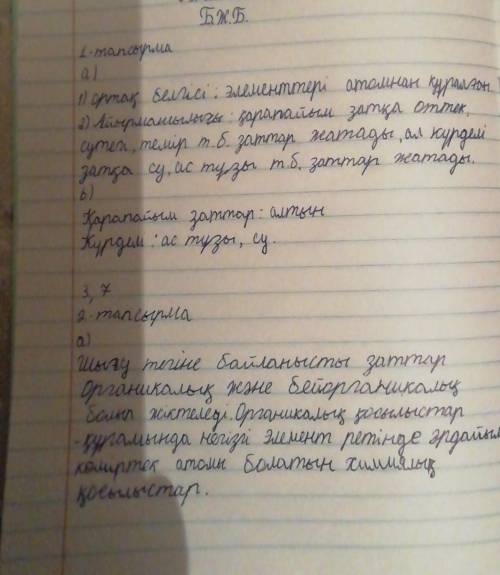 Б.Ж.Б.
1-тапсырма
а)
1) ортақ белгісі: элементтері атомнан құралған
2) Айырмашылығы: қарапайым затқа оттек,
сутек, темір т.б. заттар жатады, ал күрделі
затқа су, ас тұзы т.б. заттар жатады.
b)
Қарапайым заттар: алтын
Күрделі: ас тұзы, су.
3, 7
2-тапсырма
а)
Шығу тегіне байланысты заттар
Органикалық және бейорганикалық
болып жіктеледі. Органикалық қосылыстар
- құрамында негізгі элемент ретінде әрдайым
көміртек атомы болатын химиялық
қосылыстар.